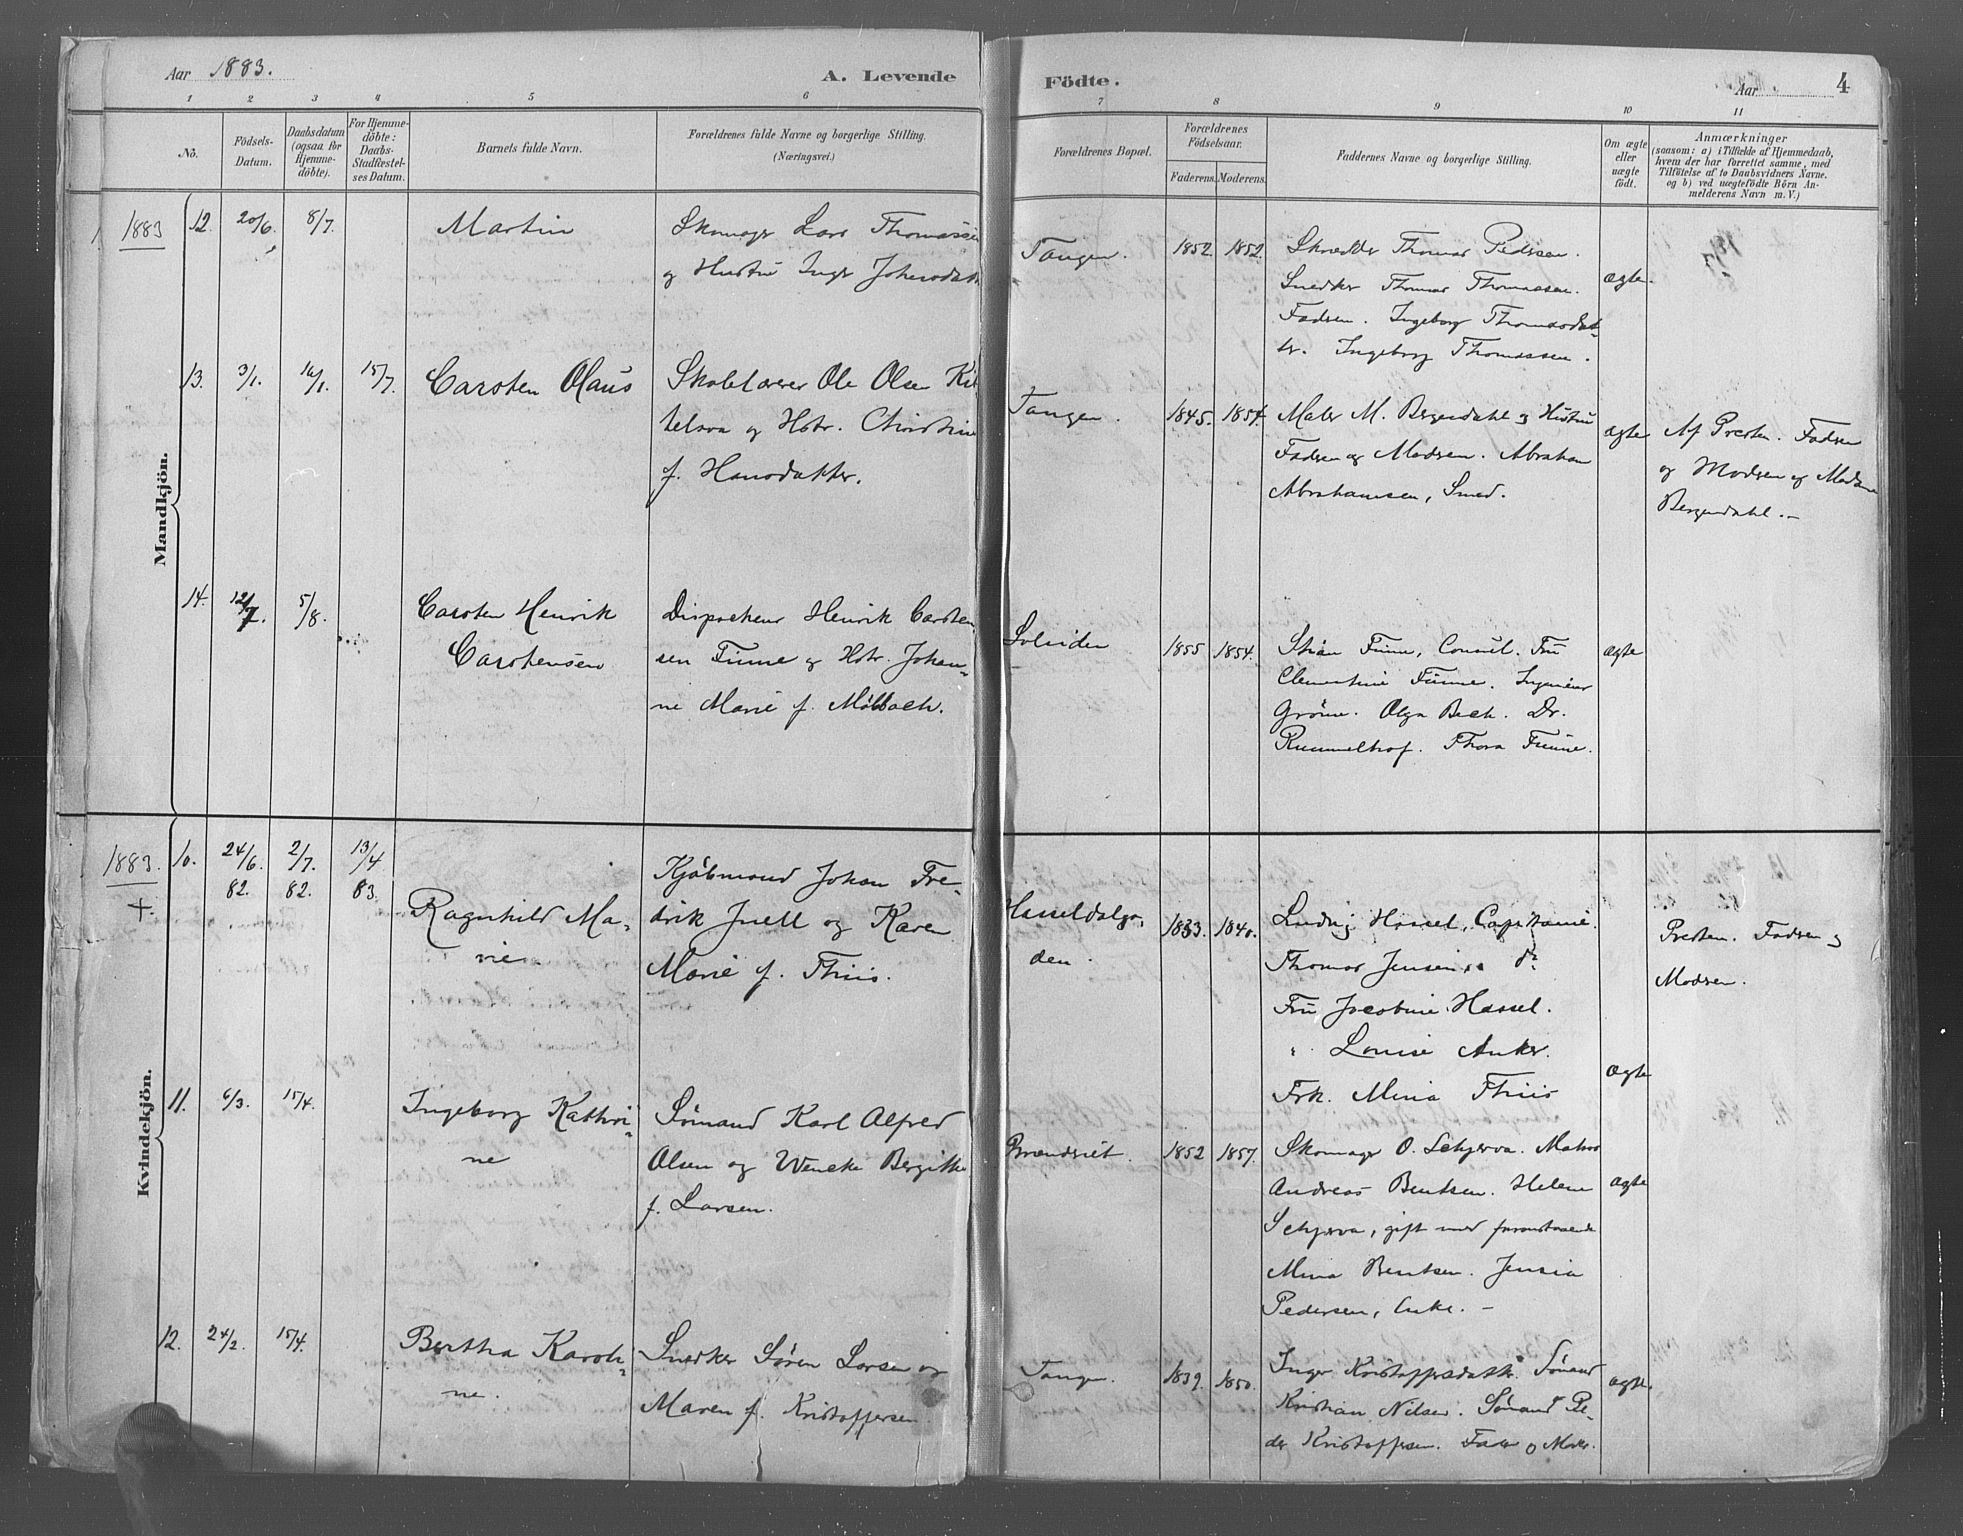 Aar 1883.
A. Levende
Födte.
Aar
4
1 2 3 4 5 6 7 8 9 10 11
No.
Födsels-
Datum.
Daabsdatum
(ogsaa for
Hjemme-
döbte).
For Hjemme-
döbte:
Daabs-
Stadfæstel-
ses Datum.
Barnets fulde Navn.
Forældrenes fulde Navne og borgerlige Stilling.
(Næringsvei.)
Forældrenes Bopæl.
Forældrenes
Födselsaar.
Faderens. Moderens.
Faddernes Navne og borgerlige Stilling.
Om ægte
eller
uægte
födt.
Anmærkninger
(saasom: a) i Tilfælde af Hjemmedaab,
hvem der har forrettet samme, med
Tilföielse af to Daabsvidners Navne.
og b) ved uægtefödte Börn An-
melderens Navn m. V.)
Mandkjön.
1883 12. 20/6. 8/7.
Martin
Skomager Lars Thomassen
og Hustru Inger
Tangen.
1852. 1852.
Skrædder Thomas Pedersen.
Snedker Thomas Thomassen.
Fadren. Ingeborg Thomasdat-
ter. Ingeborg Thomassen.
ægte.
13. 3/1. 16/1. 15/7.
Carsten Olaus
Skolelærer Ole Olsen Kit
telsaa og Hstr. Christine
f. Hansdatter.
Tangen.
1845. 1854.
Maler M. Bergendahl og Hustru
Fadren og Modren. Abraham
Abrahamsen, Smed.
ægte
Af Presten. Fadren
og Modren og Madame
Bergendahl. –
14. 12/7. 5/8.
Carsten Henrik
Carstensen
Dispacheur Henrik Carsten
sen Finne og Hstr. Johan-
ne Marie f. Møllbach.
Solsiden
1855 1854.
Stian Finne, Consul. Fru
Clementine Finne. Ingeniør
Grønn. Olga Bech. Dr.
Rummelhof. Thora Finne.
ægte
Kvindekjön.
1883.
+.
10. 24/6. 82. 2/7. 82. 13/4 83.
Ragnhild Ma-
rie.
Kjøbmand Johan Fre-
drik Juell og Karen
Marie f. Thiis.
Hasseldalga-
den.
1833. 1840.
Ludvig Hassel, Capitaine.
Thomas Jensen, do
Fru Jacobine Hassel.
" Louise Anker.
Frk. Mina Thiis
ægte
Presten. Fadren og
Modren.
11. 6/3. 15/4.
Ingeborg Kathri-
ne
Sømand Karl Alfred
Olsen og Wencke Bergitte
f. Larsen.
1852 1857.
Skomager O. Schjerva. Matros
Andreas Bentsen. Helene
Schjerva, gift med foranstaaende
Mina Bentsen. Jensia
Pedersen, Enke. –
ægte
12. 24/2. 15/4.
Bertha Karoli-
ne.
Snedker Søren Larsen og
Maren f. Kristoffersen.
Tangen.
1839. 1850.
Inger Kristoffersdatter. Sømand
Kristian Nilsen. Sømand Pe-
der Kristoffersen. Fader og Moder.
ægte.